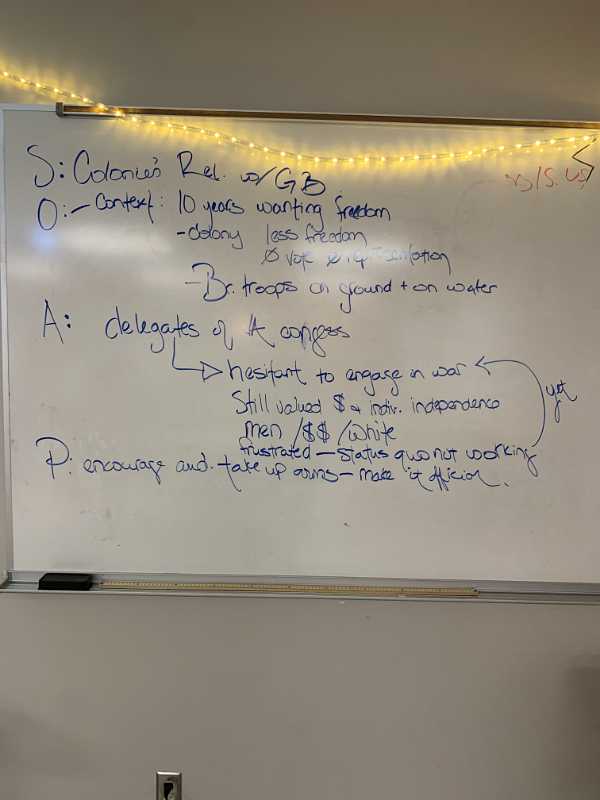 S: Colonies Rel. w/ GB
O: - Context: 10 years wanting freedom
- colony less freedom
Ø vote Ø representation
- Br. troops on ground + on water
A: delegates of A congress
hesitant to engage in war
yet
Still valued $ + indiv. independence
men /$$ /white
frustrated - status quo not working
P: encourage aud. take up arms - make it official.